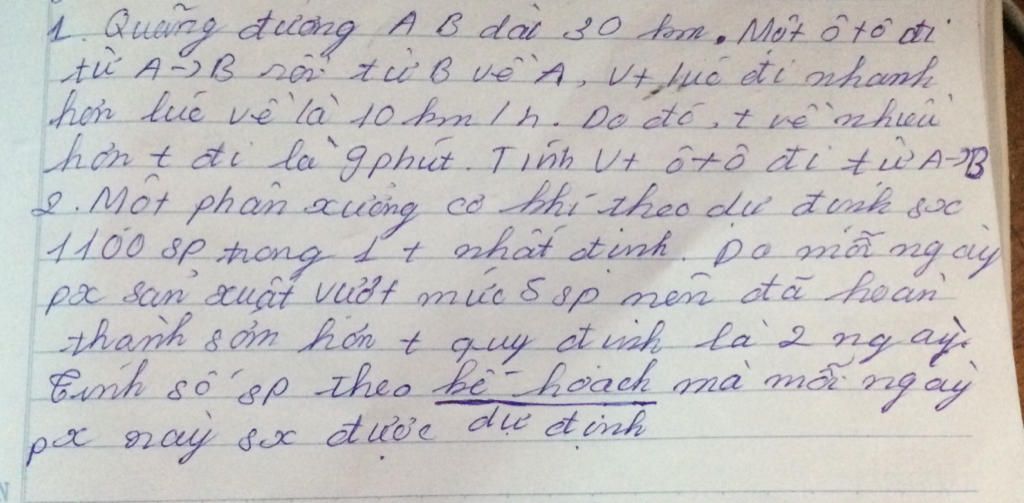 1. Quãng đường A B dài 30 km. Một ô tô đi
từ A→B rồi từ B về A, Vt lúc đi nhanh
hơn lúc về là 10 km/h. Do đó, t về nhiều
hơn t đi là 9 phút. Tính Vt ô tô đi từ A→B
2. Một phân xưởng cơ khí theo dự định sx
1100 sp trong 1 t nhất định. Do mỗi ngày
px sản xuất vượt mức 5 sp nên đã hoàn
thành sớm hơn t quy định là 2 ngày.
Tính số sp theo kế hoạch mà mỗi ngày
px này sx được dự định